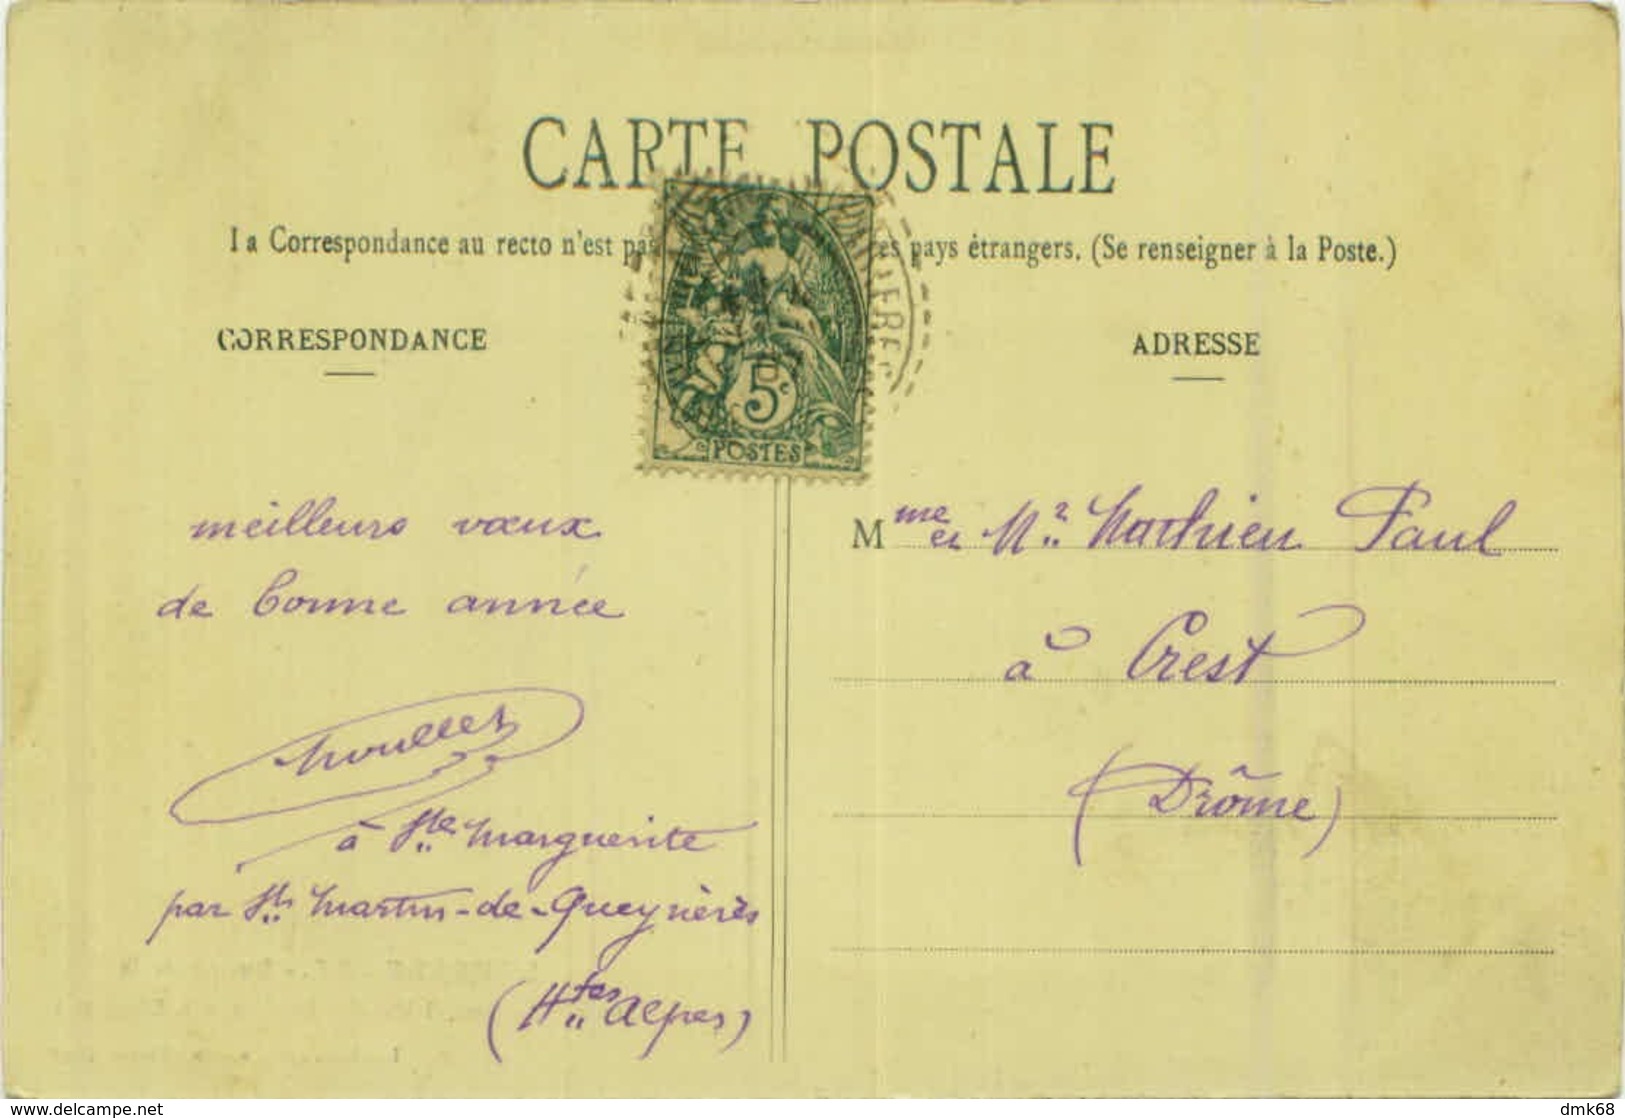 CARTE POSTALE
La Correspondance au recto n'est pas pays étrangers. (Se renseigner à la Poste.)
CORRESPONDANCE
ADRESSE
5c
POSTES
meilleurs vœux
de bonne année
à Ste Marguerite
par St Martin-de-Queyrières
(Htes Alpes)
Mme et Mr Mathieu Paul
à Crest
(Drôme)
www.delcampe.net
dmk68